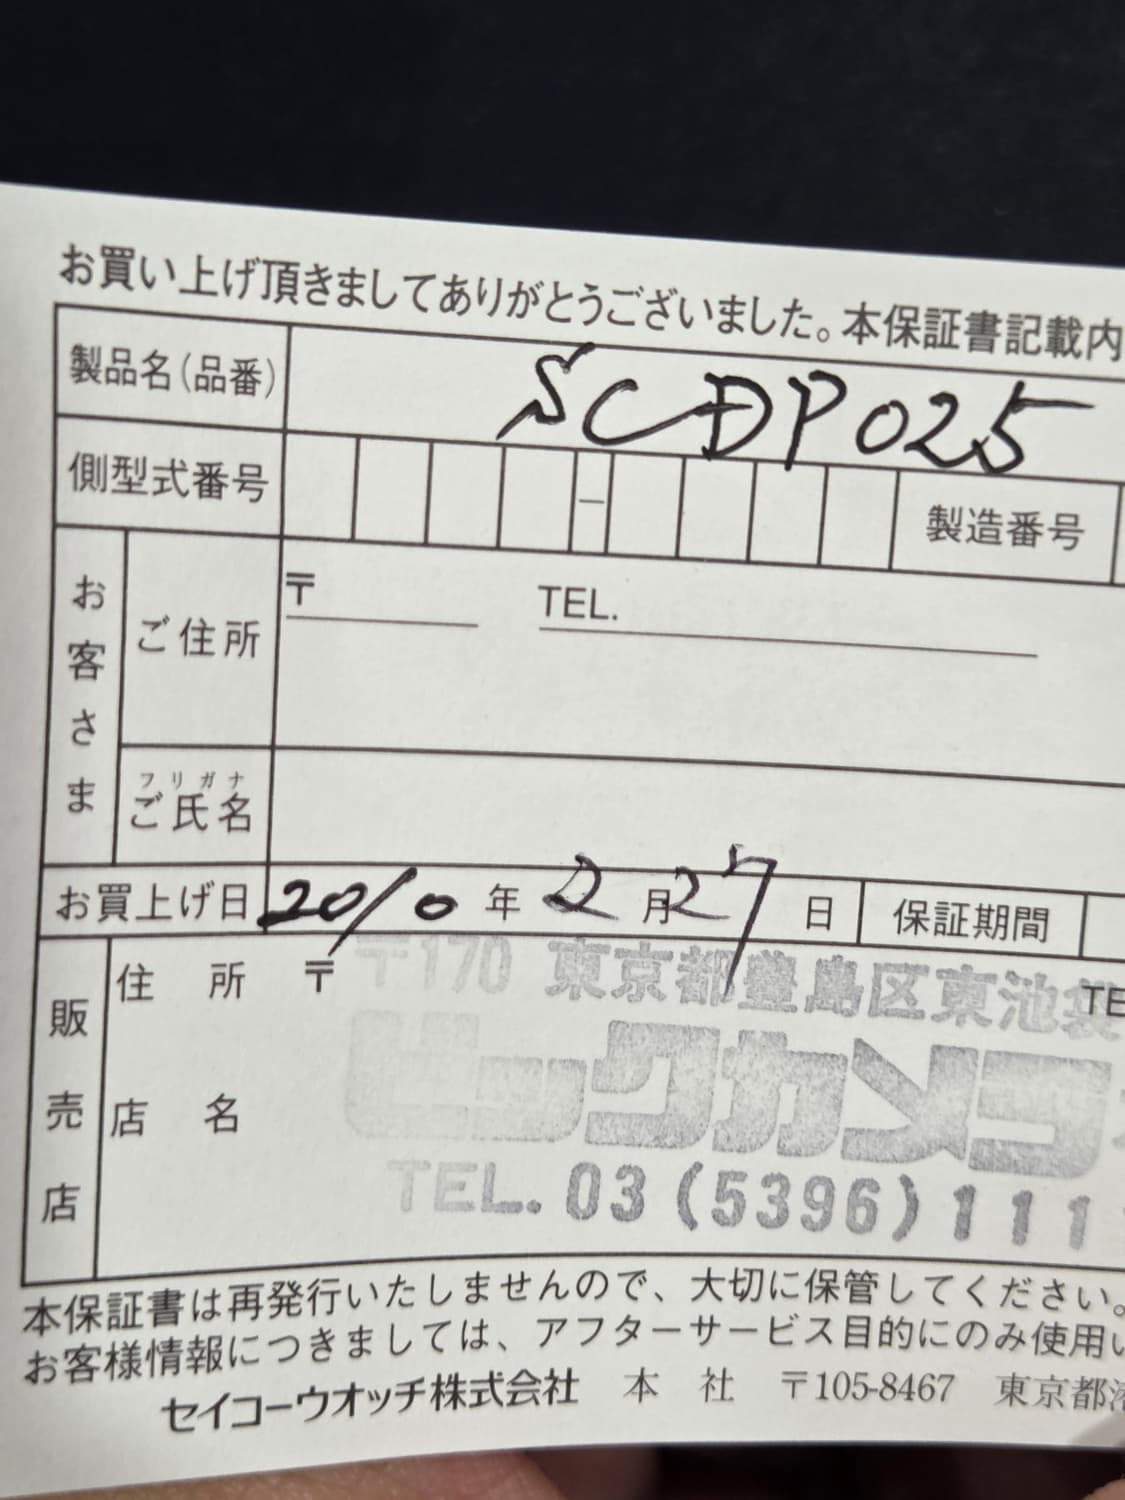 お買い上げ頂きましてありがとうございました。本保証書記載内
製品名(品番) SCDP025
側型式番号 - 製造番号
お客さま
ご住所 〒 TEL.
フリガナ
ご氏名
お買上げ日 2010年2月27日 保証期間
販売店
住所 〒 TE
〒170 東京都豊島区東池袋
店名
ビックカメラ
TEL. 03 (5396) 111
本保証書は再発行いたしませんので、大切に保管してください。
お客様情報につきましては、アフターサービス目的にのみ使用い
セイコーウオッチ株式会社 本 社 〒105-8467 東京都港